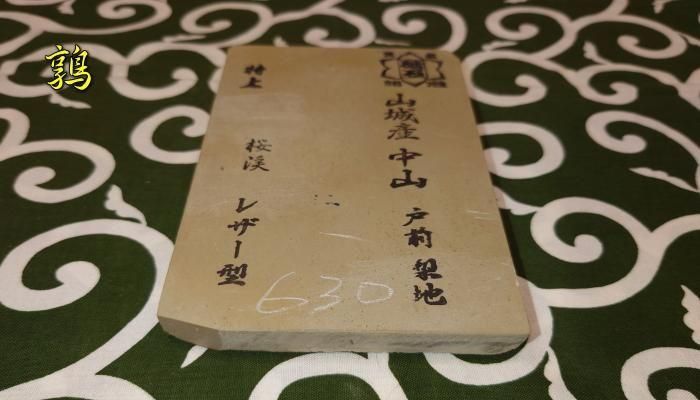 鶉
山城産 中山 戸前 梨地
特上 桜渓 レザー型
630